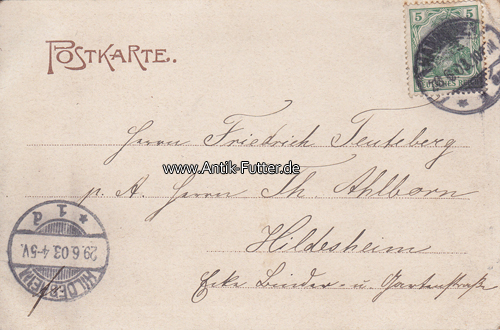 POSTKARTE.
5 5
Herrn Friedrich Teuteberg
www.Antik-Futter.de
p. A. Herrn Th. Ahlborn
Hildesheim
Ecke Binder- u. Gartenstraße
HILDESHEIM
29.6.03. 4-5V.
* 1 d